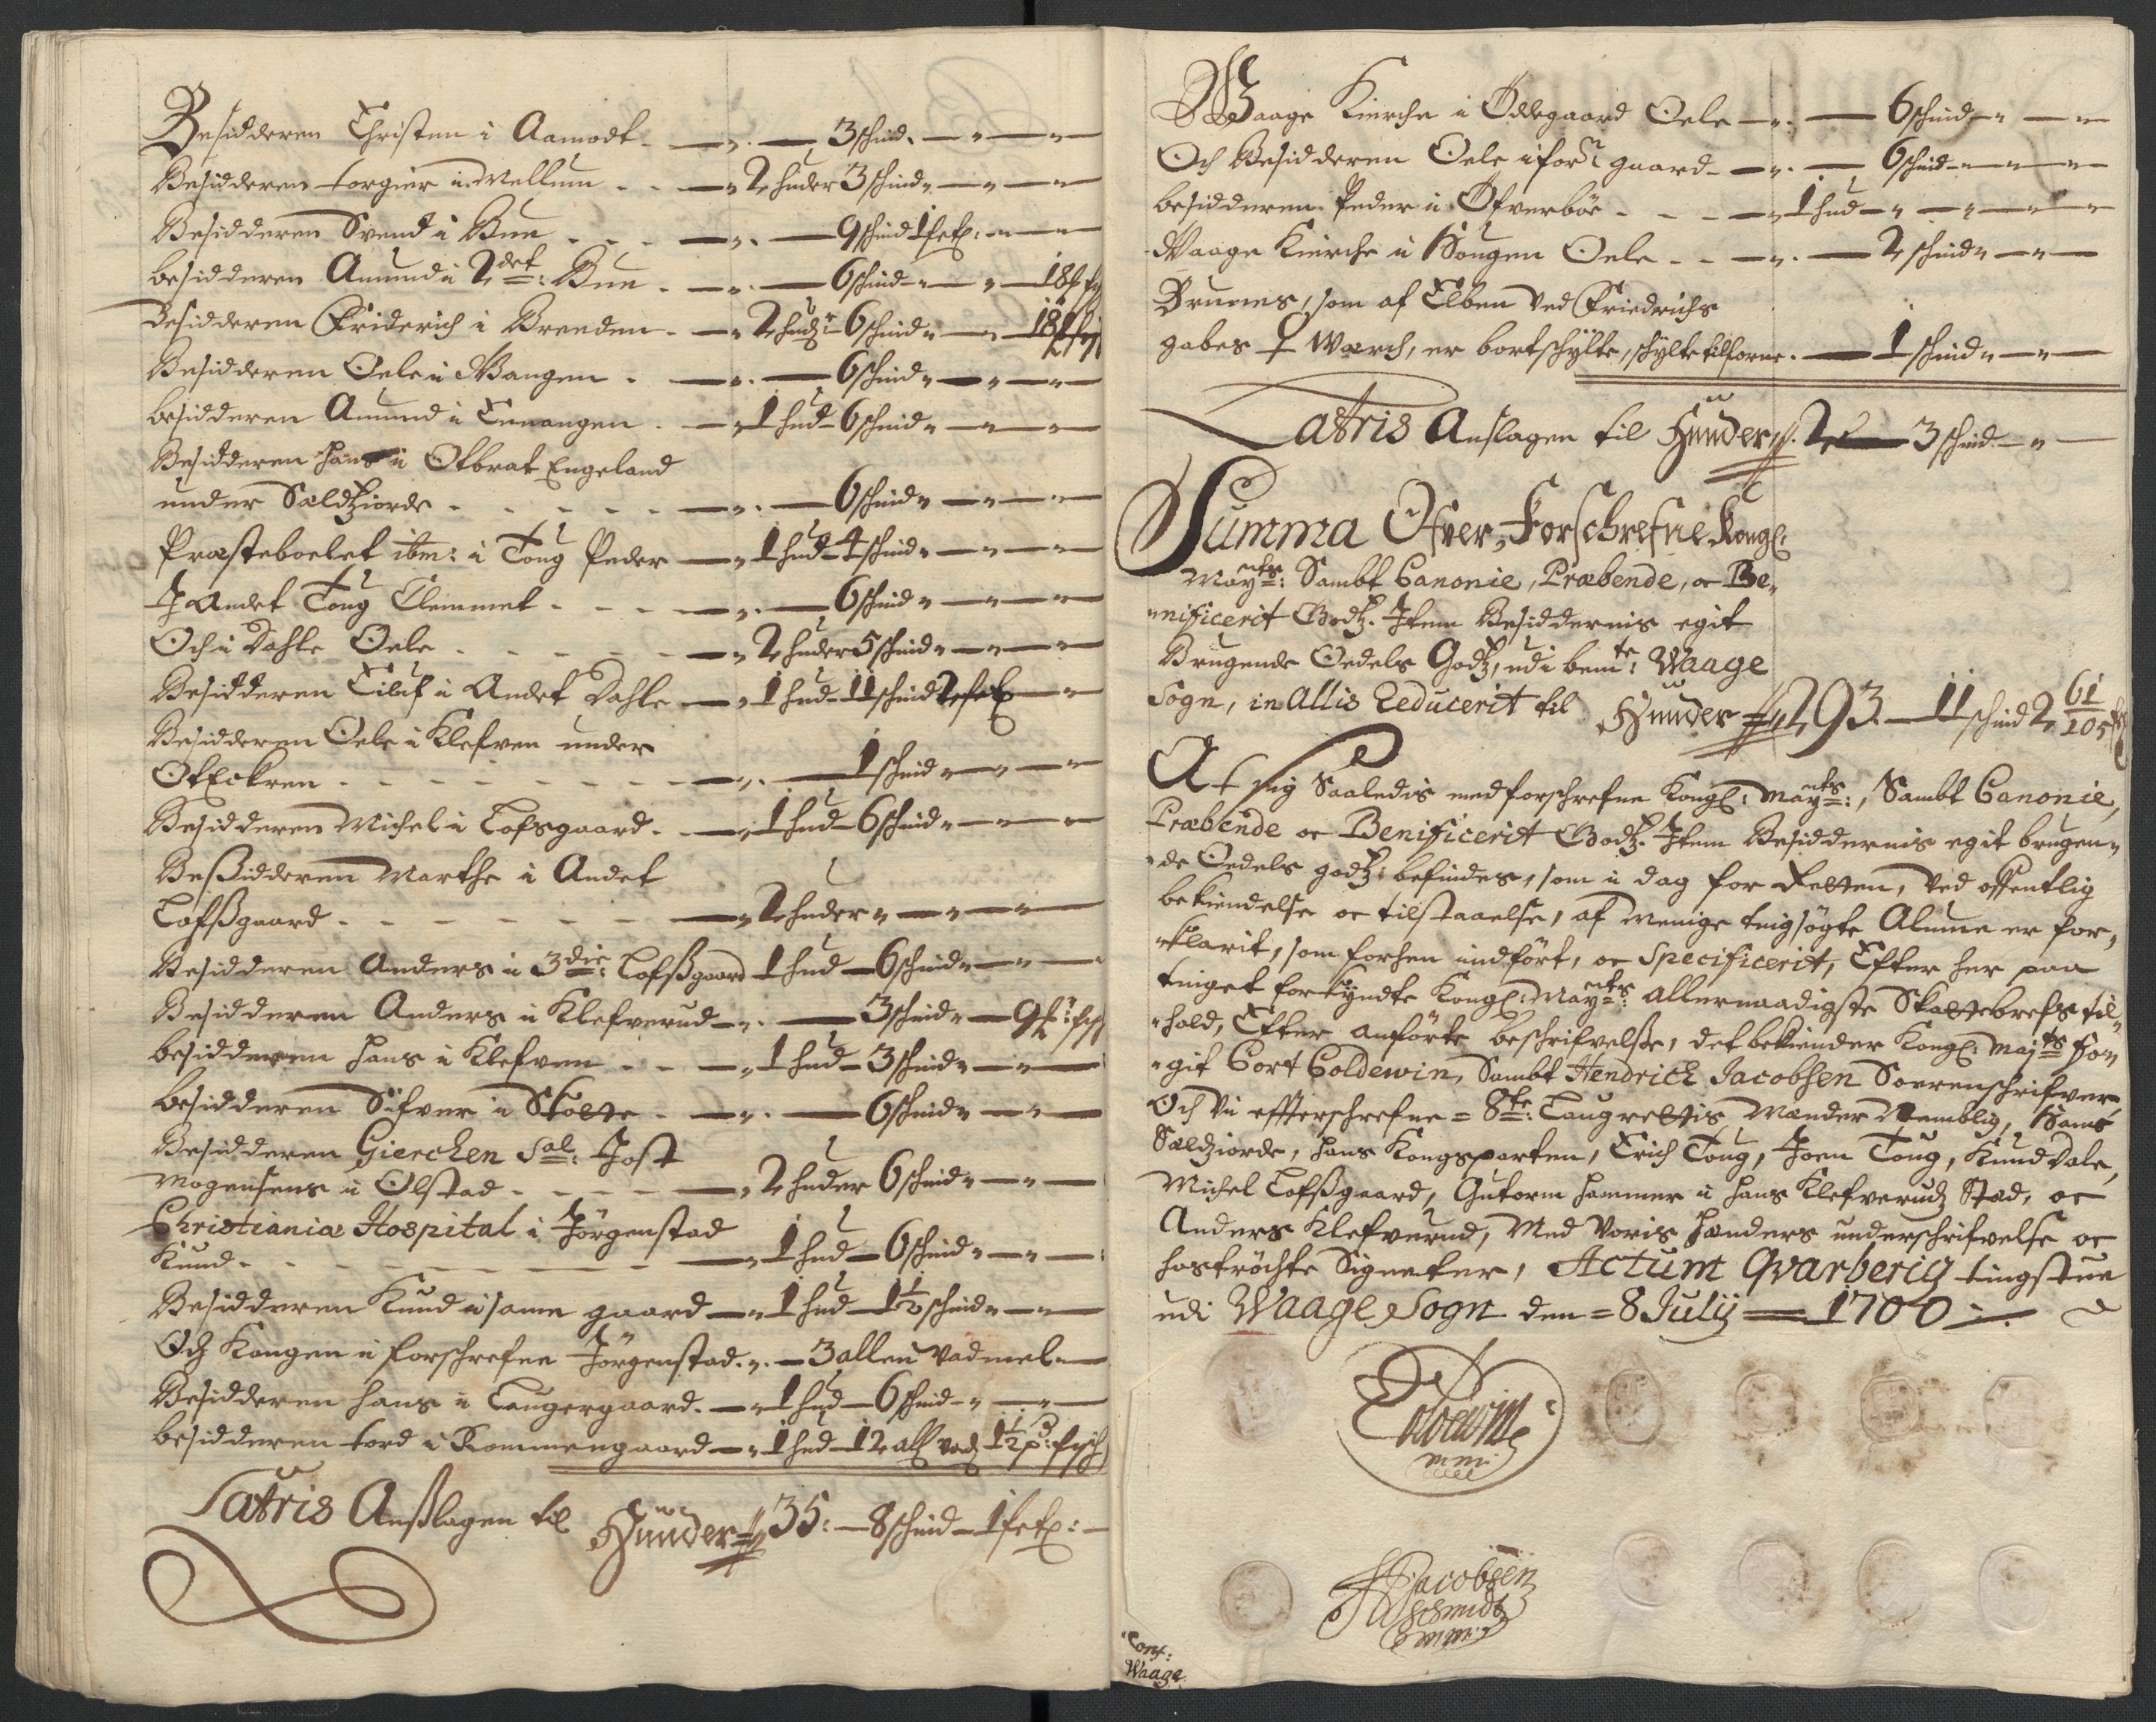 Besidderen Christen i Aamodt - — „ — 3 schind. — „ —
Besidderen torgier i Mellum - - — „ 2 huder 3 schind „ — „ —
Besidderen Svend i Bue - - - — „ — 9 schind 1 sch: — „ —
besidderen Amund i 2det: Bue - — „ — 6 schind — „ — 18
Besidderen Friderich i Breeden - — „ 2 hud: 6 schind „ — „ 18
Besidderen Oele i Wangen - — „ — 6 schind „ — „ —
besidderen Amund i Ennangen - — „ 1 hud 6 schind „ — „ —
Besidderen Hans i Otbrat Engeland
under Sældziorde - - - - - — „ — 6 schind „ — „ —
Præsteboelet ibm: i Toug Peder — „ 1 hud 4 schind „ — „ —
J Andet Toug Clemmet - - - — „ — 6 schind „ — „ —
Och i Dahle Oele - - - - - — „ 2 huder 5 schind „ — „ —
Besidderen Eiluf i Andet Dahle — „ 1 hud 11 schind 2 —
Besidderen Oele i Klefven under
Oteckren - - - - - - - — „ — 1 schind „ — „ —
Besidderen Michel i Lofsgaard - — „ 1 hud 6 schind „ — „ —
Beßidderen Marthe i Andet
Lofßgaard - - - - - - — „ 2 huder „ — „ —
Besidderen Anders i 3die: Lofßgaard 1 hud — 6 schind „ — „ —
Besidderen Anders i Klefverud — „ — 3 schind „ — 9
besidderen Hans i Klefven - - — „ 1 hud — 3 schind „ — „ —
besidderen Sifver i Skotte - — „ — 6 schind „ — „ —
Besidderen Gierchen Sal: Jost
Mogensens i Olstad - - - - — „ 2 huder 6 schind „ — „ —
Christiania Hospital i Jörgenstad
Knud - - - - - - - — „ 1 hud — 6 schind „ — „ —
Besidderen Knud i same gaard — „ 1 hud 1½ schind „ — „ —
Och Kongen i forschrefne Jörgenstad. „ — 3 allen vadmel —
Besidderen Hans i Laugergaard. — „ 1 hud — 6 schind — „ — „ —
besidderen tord i Rommengaard — „ 1 hud 12 all vad: 1½ p: fisch
Latris Anßlagen til Huuder 35: — 8 schind — 1
Waage Kierche i Ödegaard Oele — „ — 6 schind — „ —
Och Besidderen Oele i forn: gaard — „ — 6 schind — „ —
besidderen Peder i Öfverböe - - — „ 1 hud — „ — „ —
Waage Kierche i Hougen Oele - - — „ — 2 schind „ — „ —
Brunes, som af Elben ved Friedrichs
gabes Wærch, er bortschylte, schylte tilforne. — 1 schind „ — „ —
Latris Anslagen til Huuder 2 — 3 schind — „ —
Summa Ofver Forschrefne Kongl:
Mayts: Sambt Canonie, Præbende, oc Be„
„nificerit Godtz. Jtem Besiddernis egit
Brugende Oedels Godtz, udi bemte: Waage
Sogn, in Allis Eeducerit til Huuder 293. — 11 schind 2 61/105
At sig Saaledis med forschrefne Kongl: Mayts:, Sambt Canonie,
Præbende oc Benificerit Godtz. Jtem Besiddernis egit brugen„
„de Oedels godtz: befindes, som i dag for Retten, ved offentlig
bekiendelse oc tilstaaelse, af menige tingsögte Almue er for„
„klarit, som forhen indfört, oc Specificerit, Efter her paa
tinget forkyndte Kongl: Mayts: Allernaadigste Skattebrefs til„
„hold, Efter anförte beschrifvelße, det bekiender Kongl: Mayts Fou„
„git Cort Coldewin, Sambt Hendrich Jacobsen Sorenschrifver,
Och Vii effterschrefne = 8te: Laugrettis Mænder Nemblig, Hans
Sældziorde, Hans Kongsparten, Erich Toug, Joen Toug, Knud Dale,
Michel Lofßgaard, Gutorm Hammer i Hans Klefveruds Sted, oc
Anders Klefverud, Med Voris Hænders underschrifvelse oc
hoströchte Signeter, Actum Qvarberig tingstue
udi Waage Sogn den = 8 Julij — 1700
Coldewin
mm
HJacobsen
Schmidt
mm
Cort:
Waage